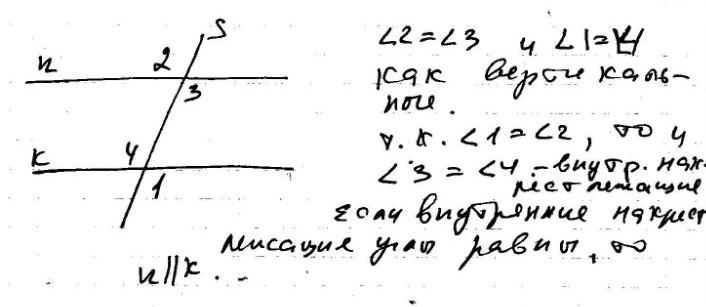 S
n 2
3
к 4
1
∠2=∠3 и ∠1=∠4
как вертикаль-
ные.
т.к. ∠1=∠2, то и
∠3=∠4 - внутр. нак-
рест лежащие
Если внутренние накрест
лежащие углы равны, то
n||к...